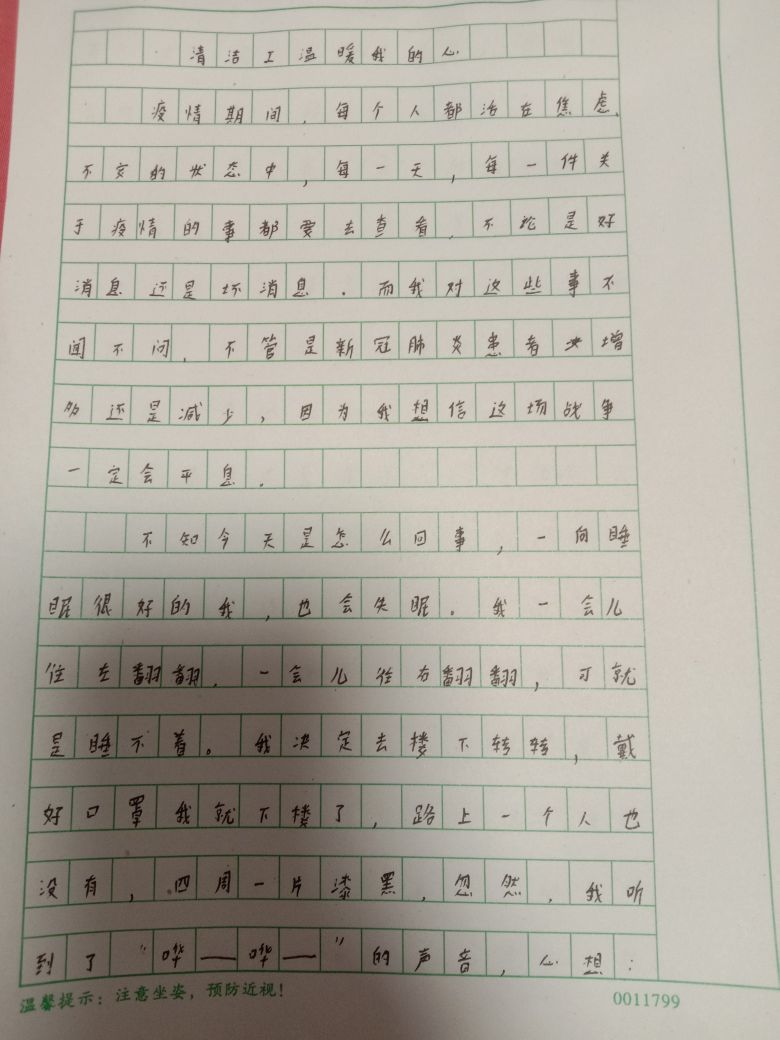 清洁工温暖我的心
疫情期间，每个人都活在焦虑、
不安的状态中，每一天，每一件关
于疫情的事都要去查看，不论是好
消息还是坏消息．而我对这些事不
闻不问，不管是新冠肺炎患者增
多还是减少，因为我想信这场战争
一定会平息．
不知今天是怎么回事，一向睡
眠很好的我，也会失眠。我一会儿
往左翻翻，一会儿往右翻翻，可就
是睡不着。我决定去楼下转转，戴
好口罩我就下楼了，路上一个人也
没有，四周一片漆黑，忽然，我听
到了“哗——哗——”的声音，心想：
温馨提示：注意坐姿，预防近视！ 0011799